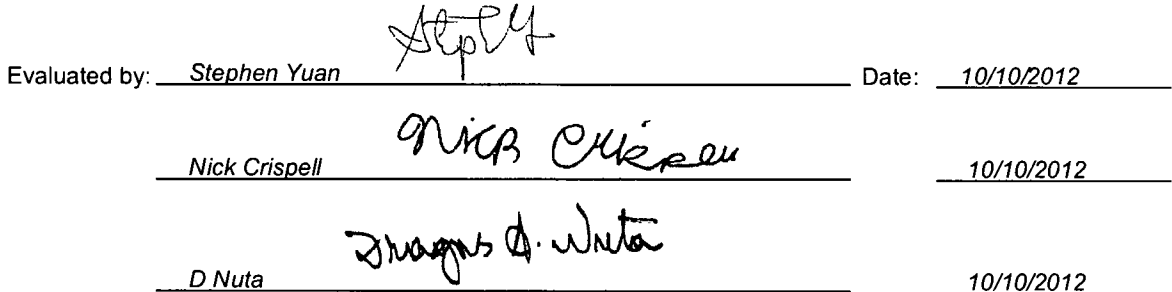 Evaluated by: Stephen Yuan Date: 10/10/2012
Nick Crispell
Nick Crispell 10/10/2012
Dragos A. Nuta
D Nuta 10/10/2012